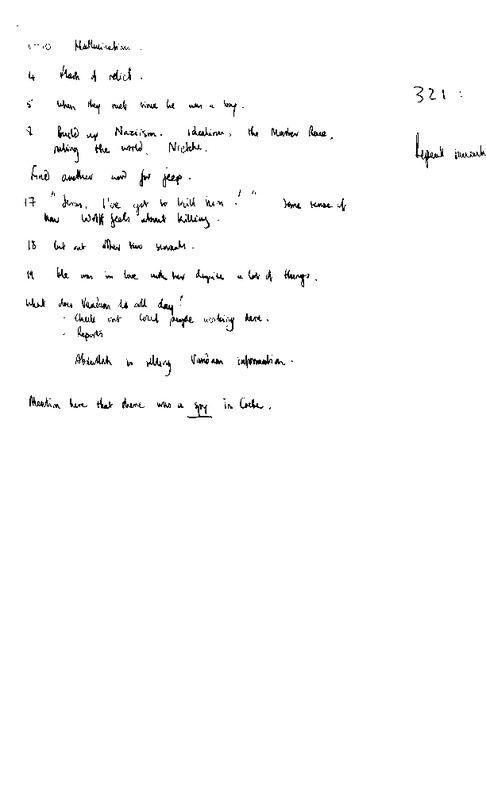 Hallucination.
4 Flash of relief.
5 when they met since he was a boy.
8 Build up Naziism. Idealism, the Master Race,
ruling the world, Nietche.
Find another word for jeep.
17 "Jesus, I've got to kill him!" Some sense of
how Wolff feels about killing.
18 Cut out other two servants.
19 He was in love with her despite a lot of things.
What does Vandam do all day?
- Check out local people working here.
- Reports
Abdullah is selling Vandam information.
Mention here that there was a spy in Cairo.
321:
Repeat